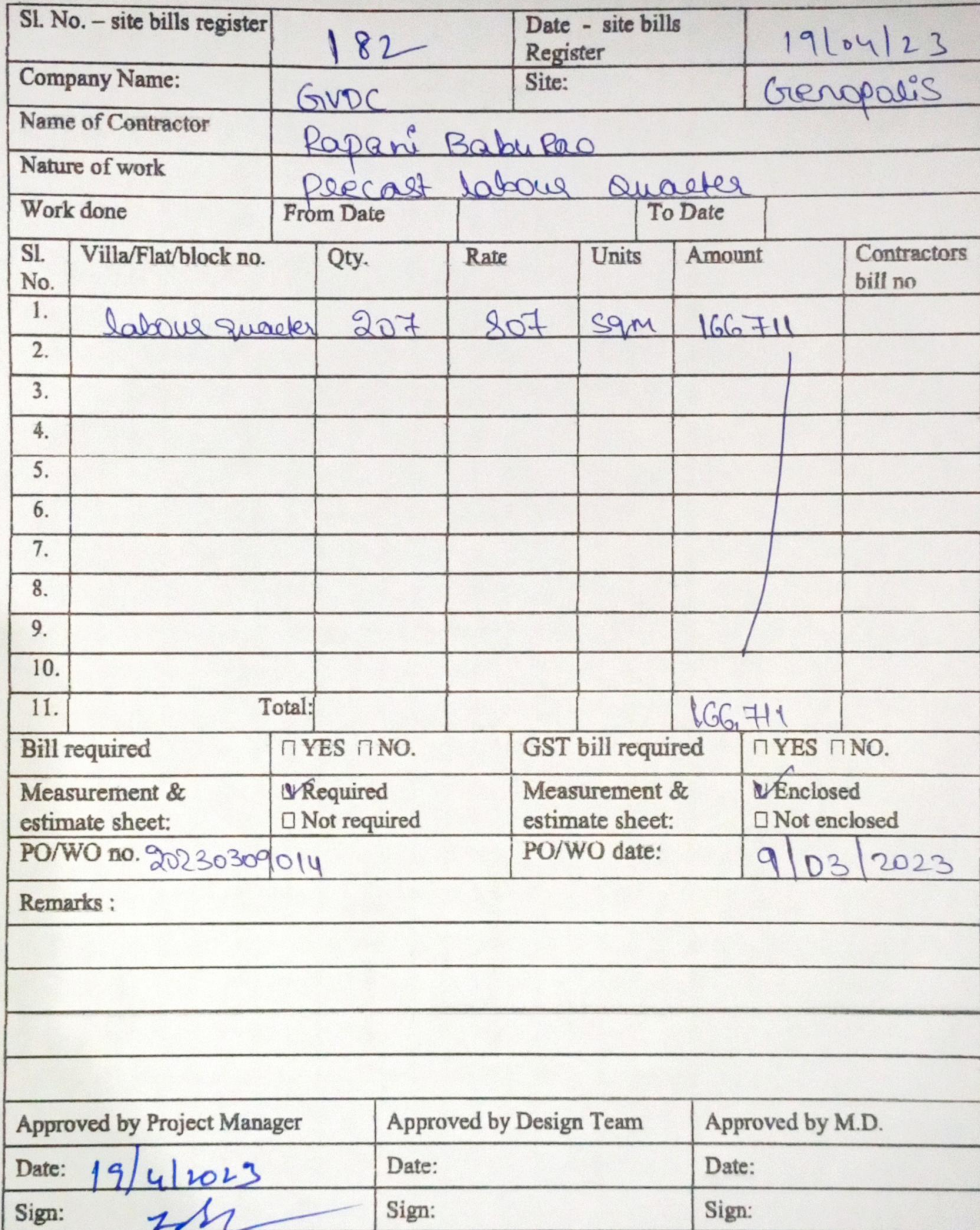 Sl. No. – site bills register 182 Date - site bills Register 19/04/23
Company Name: GVDC Site: Genopolis
Name of Contractor Rapani Babu Rao
Nature of work Precast labour Quarter
Work done From Date To Date
Sl. No. Villa/Flat/block no. Qty. Rate Units Amount Contractors bill no
1. labour quarter 207 807 sqm 166711
2.
3.
4.
5.
6.
7.
8.
9.
10.
11. Total: 166,711
Bill required □ YES □ NO. GST bill required □ YES □ NO.
Measurement & estimate sheet: ☑ Required □ Not required Measurement & estimate sheet: ☑ Enclosed □ Not enclosed
PO/WO no. 20230309014 PO/WO date: 9/03/2023
Remarks :
Approved by Project Manager Approved by Design Team Approved by M.D.
Date: 19/4/2023 Date: Date:
Sign: Sign: Sign: